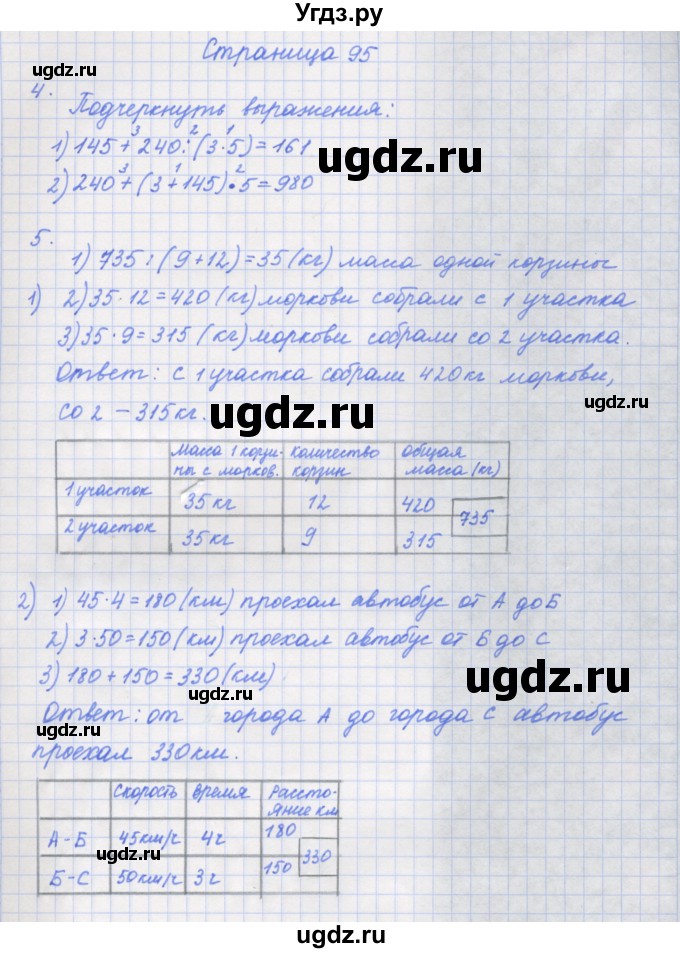 Угдз.ру
Страница 95
ugdz.ru
4.
Подчеркнуть выражения:
3 2 1
1) 145 + 240 : (3 · 5) = 161
ugdz.ru
3 1 2
2) 240 + (3 + 145) · 5 = 980
5.
1) 735 : (9 + 12) = 35 (кг) масса одной корзины
1) 2) 35 · 12 = 420 (кг) моркови собрали с 1 участка
3) 35 · 9 = 315 (кг) моркови собрали со 2 участка.
Ответ: с 1 участка собрали 420 кг моркови,
ugdz.ru
со 2 – 315 кг.
ugdz.ru
Масса 1 корзи- Количество Общая
ны с морков. корзин масса (кг)
1 участок 35 кг 12 420
735
2 участок 35 кг 9 315
2) 1) 45 · 4 = 180 (км) проехал автобус от А до Б
2) 3 · 50 = 150 (км) проехал автобус от Б до С
3) 180 + 150 = 330 (км)
ugdz.ru
ugdz.ru
Ответ: от города А до города С автобус
ugdz.ru
проехал 330 км.
Скорость Время Рассто-
яние км
А – Б 45 км/ч 4 ч 180
ugdz.ru
330
Б – С 50 км/ч 3 ч 150
ugdz.ru
ugdz.ru